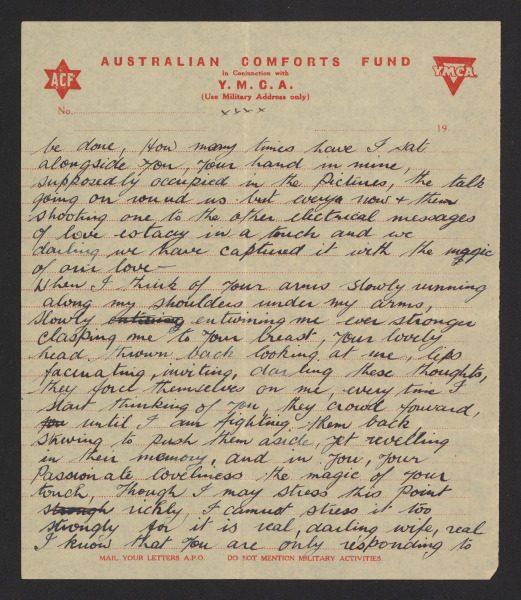 AUSTRALIAN COMFORTS FUND
In Conjunction with
Y.M.C.A.
(Use Military Address only)
ACF
YMCA
No.
xxxx
19
be done, How many times have I sat
alongside you, your hand in mine,
supposedly occupied in the pictures, the talk
going on round us but every now & then
shooting one to the other electrical messages
of love extacy in a touch and we
darling we have captured it with the magic
of our love —
When I think of your arms slowly running
along my shoulders under my arms,
slowly entwining me ever stronger
clasping me to your breast, your lovely
head thrown back looking at me, lips
facinating, inviting, darling these thoughts,
they force themselves on me, every time I
start thinking of you, they crowd forward,
you until I am fighting them back
striving to push them aside, yet revelling
in their memory, and in you, your
passionate loveliness the magic of your
touch, Though I may stress this point
strongly richly, I cannot stress it too
strongly for it is real, darling wife, real
I know that you are only responding to
MAIL YOUR LETTERS A.P.O. DO NOT MENTION MILITARY ACTIVITIES.